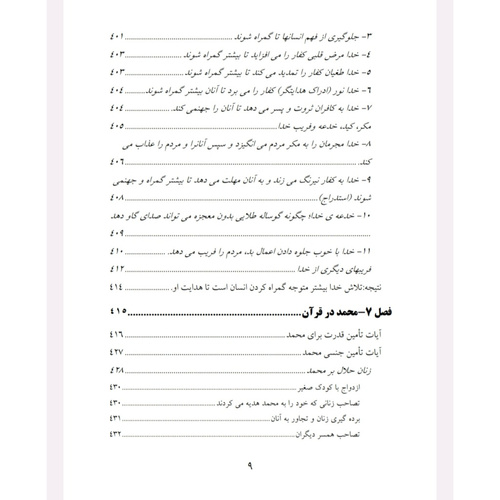 ۳- جلوگیری از فهم انسانها تا گمراه شوند ........ ۴۰۱
۴- خدا مرض قلبی کفار را می افزاید تا بیشتر گمراه شوند ........ ۴۰۳
۵- خدا طغیان کفار را تمدید می کند تا بیشتر گمراه شوند ........ ۴۰۳
۶- خدا نور (ادراک هدایتگر) کفار را می برد تا آنان بیشتر گمراه شوند ........ ۴۰۴
۷- خدا به کافران ثروت و پسر می دهد تا آنان را جهنمی کند. ........ ۴۰۴
مکر، کید، خدعه وفریب خدا ........ ۴۰۵
۸- خدا مجرمان را به مکر مردم می انگیزد و سپس آنانرا و مردم را عذاب می
کند. ........ ۴۰۶
۹- خدا به کفار نیرنگ می زند و به آنان مهلت می دهد تا بیشتر گمراه و جهنمی
شوند (استدراج) ........ ۴۰۸
۱۰- خدعه ی خدا؛ چگونه گوساله طلایی بدون معجزه می تواند صدای گاو دهد
........ ۴۰۹
۱۱- خدا با خوب جلوه دادن اعمال بد، مردم را فریب می دهد. ........ ۴۱۰
فریبهای دیگری از خدا ........ ۴۱۲
نتیجه:تلاش خدا بیشتر متوجه گمراه کردن انسان است تا هدایت او. ........ ۴۱۴
فصل ۷-محمد در قرآن ........ ۴۱۵
آیات تأمین قدرت برای محمد ........ ۴۱۶
آیات تأمین جنسی محمد ........ ۴۲۷
زنان حلال بر محمد ........ ۴۲۸
ازدواج با کودک صغیر ........ ۴۳۰
تصاحب زنانی که خود را به محمد هدیه می کردند ........ ۴۳۰
برده گیری زنان و تجاوز به آنان ........ ۴۳۱
تصاحب همسر دیگران ........ ۴۳۲
۹